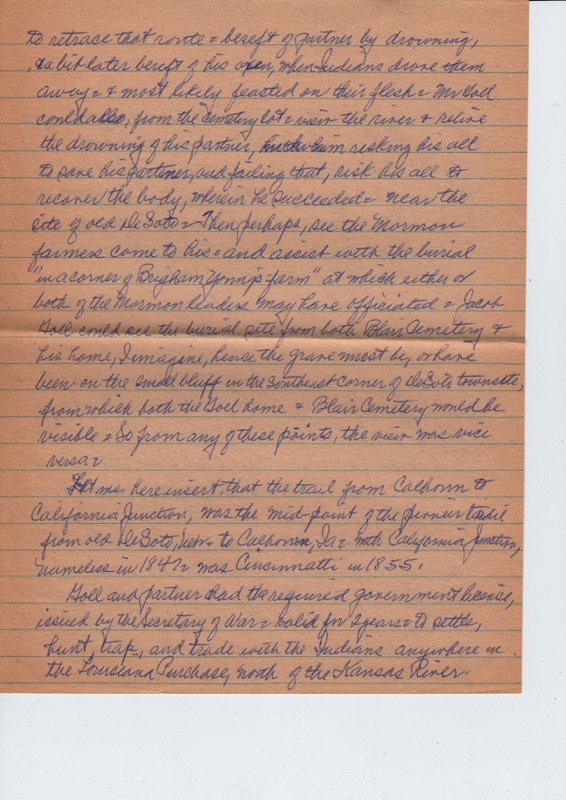 to retrace that route = bereft of partner by drowning,
& a bit later bereft of his oxen, when Indians drove them
away = & most likely feasted on their flesh = Mr Goll
could also, from the cemetery lot = view the river & relive
the drowning of his partner, him risking his all
to save his partener, and failing that, risk his all to
recover the body, wherein he succeeded = near the
site of old DeSoto = Then perhaps, see the Mormon
farmers come to his = and assist with the burial
"in a corner of Brigham Young's farm" at which either or
both of the Mormon leaders may have officiated = Jacob
Goll could see the burial site from both Blair Cemetery &
his home, I imagine, hence the grave must be, or have
been on the small bluff in the Southeast corner of DeSoto townsite,
from which both the Goll home & Blair Cemetery would be
visible = So from any of these points, the view was vice
versa =
Let me here insert, that the trail from Calhoun to
California Junction, was the mid-point of the pioneer trail
from old DeSoto, Nebr. to Calhoun, Ia = with California Junction,
nameless in 1847 = was Cincinnatti in 1855.
Goll and partner had the required government license,
issued by the Secretary of War = valid for 2 years = to settle,
hunt, trap, and trade with the Indians anywhere in
the Louisiana Purchase, north of the Kansas River.